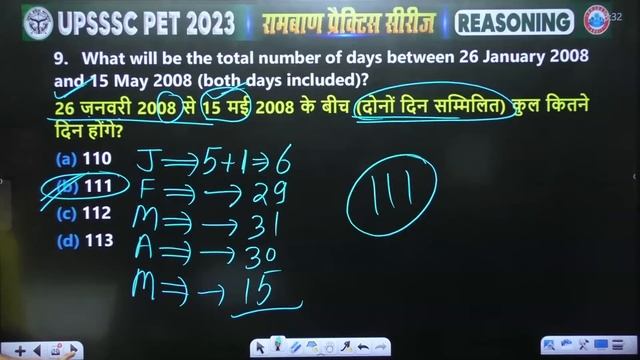 UPSSSC PET 2023 रामबाण प्रैक्टिस सीरीज REASONING
9. What will be the total number of days between 26 January 2008
and 15 May 2008 (both days included)?
26 जनवरी 2008 से 15 मई 2008 के बीच (दोनों दिन सम्मिलित) कुल कितने
दिन होंगे?
(a) 110
(b) 111
(c) 112
(d) 113
J ⇒ 5+1⇒6
F ⇒ → 29
M ⇒ → 31
A ⇒ → 30
M ⇒ → 15
111